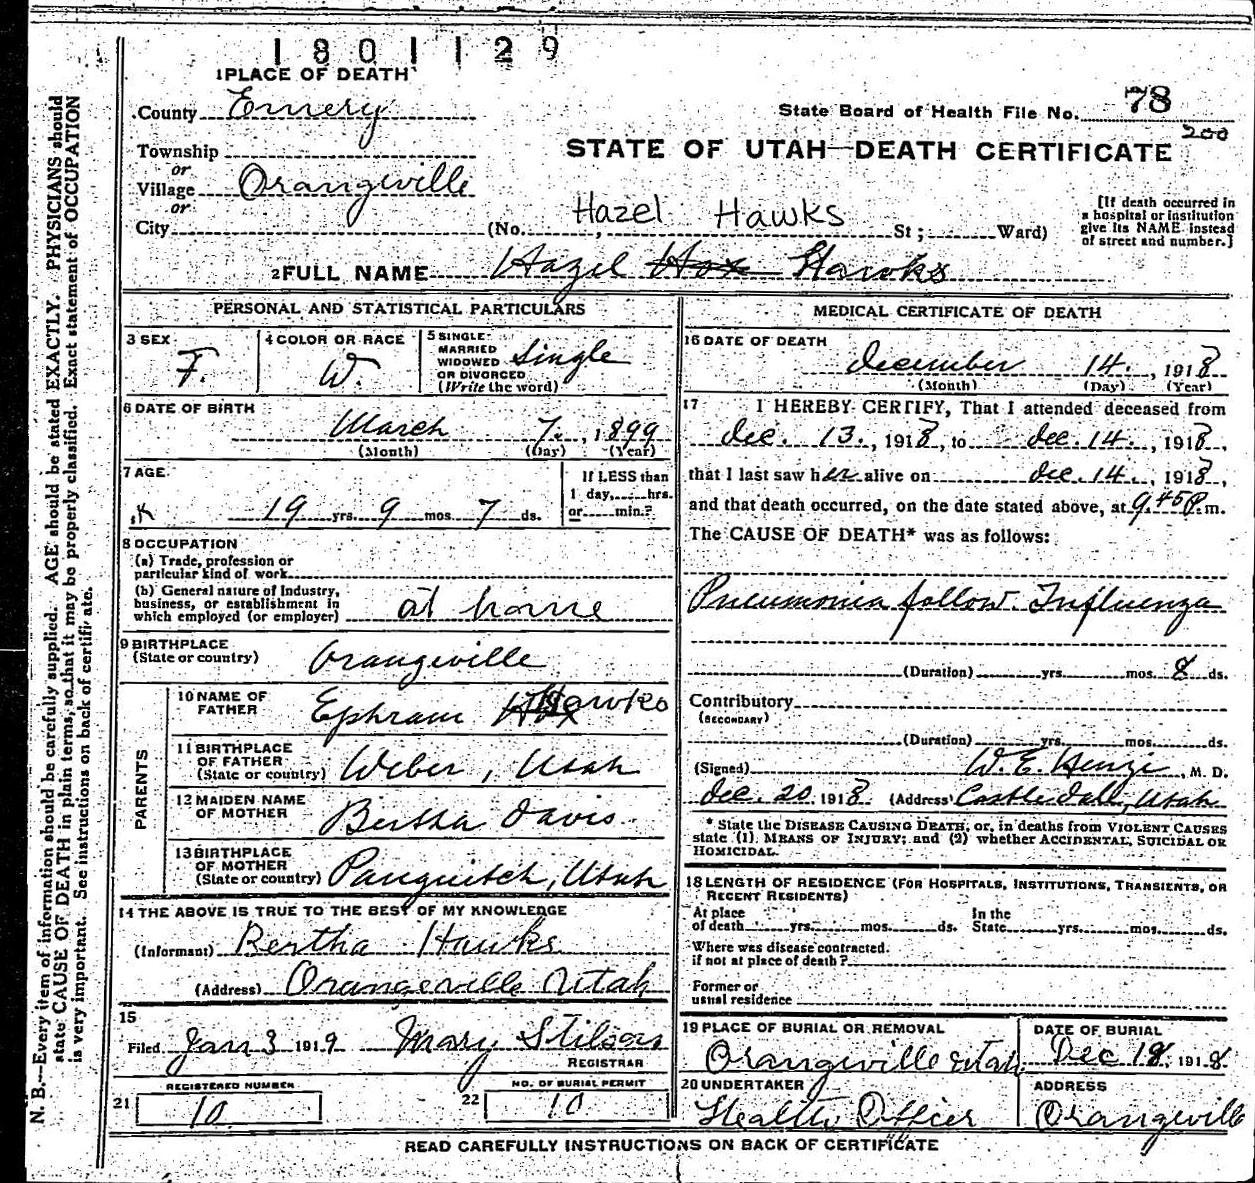 1801129
1 PLACE OF DEATH
County Emery
State Board of Health File No. 78
200
Township
or
Village Orangeville
or
City
STATE OF UTAH—DEATH CERTIFICATE
Hazel Hawks
(No. St ; Ward)
[If death occurred in
a hospital or institution
give its NAME instead
of street and number.]
2 FULL NAME Hazel Hox Hawks
PERSONAL AND STATISTICAL PARTICULARS
3 SEX
F.
4 COLOR OR RACE
W.
5 SINGLE
MARRIED
WIDOWED
OR DIVORCED
(Write the word)
Single
6 DATE OF BIRTH
March 7., 1899
(Month) (Day) (Year)
7 AGE
19 yrs. 9 mos. 7 ds.
If LESS than
1 day, hrs.
or min.?
8 OCCUPATION
(a) Trade, profession or
particular kind of work
(b) General nature of Industry,
business, or establishment in
which employed (or employer) at home
9 BIRTHPLACE
(State or country) Orangeville
PARENTS
10 NAME OF
FATHER Ephram Hawks
11 BIRTHPLACE
OF FATHER
(State or country) Weber, Utah
12 MAIDEN NAME
OF MOTHER Bertha Davis
13 BIRTHPLACE
OF MOTHER
(State or country) Panguitch, Utah
14 THE ABOVE IS TRUE TO THE BEST OF MY KNOWLEDGE
(Informant) Bertha Hawks
(Address) Orangeville Utah
15
Filed Jan 3 1919 Mary Stilson
REGISTRAR
21 REGISTERED NUMBER
10
22 NO. OF BURIAL PERMIT
10
MEDICAL CERTIFICATE OF DEATH
16 DATE OF DEATH
December 14., 1918
(Month) (Day) (Year)
17 I HEREBY CERTIFY, That I attended deceased from
Dec. 13., 1918, to Dec. 14., 1918,
that I last saw her alive on Dec. 14., 1918,
and that death occurred, on the date stated above, at 9.45 P.m.
The CAUSE OF DEATH* was as follows:
Pneumonia follow. Influenza
(Duration) yrs. mos. 8 ds.
Contributory
(SECONDARY)
(Duration) yrs. mos. ds.
(Signed) W. E. , M. D.
Dec. 20 1918 (Address) Castle Dale, Utah
* State the DISEASE CAUSING DEATH, or, in deaths from VIOLENT CAUSES
state (1) MEANS OF INJURY; and (2) whether ACCIDENTAL, SUICIDAL OR
HOMICIDAL.
18 LENGTH OF RESIDENCE (FOR HOSPITALS, INSTITUTIONS, TRANSIENTS, OR
RECENT RESIDENTS)
At place
of death yrs. mos. ds.
In the
State yrs. mos. ds.
Where was disease contracted.
if not at place of death?
Former or
usual residence
19 PLACE OF BURIAL OR REMOVAL
Orangeville Utah
DATE OF BURIAL
Dec 18 1918
20 UNDERTAKER
Health Officer
ADDRESS
Orangeville
READ CAREFULLY INSTRUCTIONS ON BACK OF CERTIFICATE
N. B.—Every item of information should be carefully supplied. AGE should be stated EXACTLY. PHYSICIANS should
state CAUSE OF DEATH in plain terms, so that it may be properly classified. Exact statement of OCCUPATION
is very important. See instructions on back of certificate.